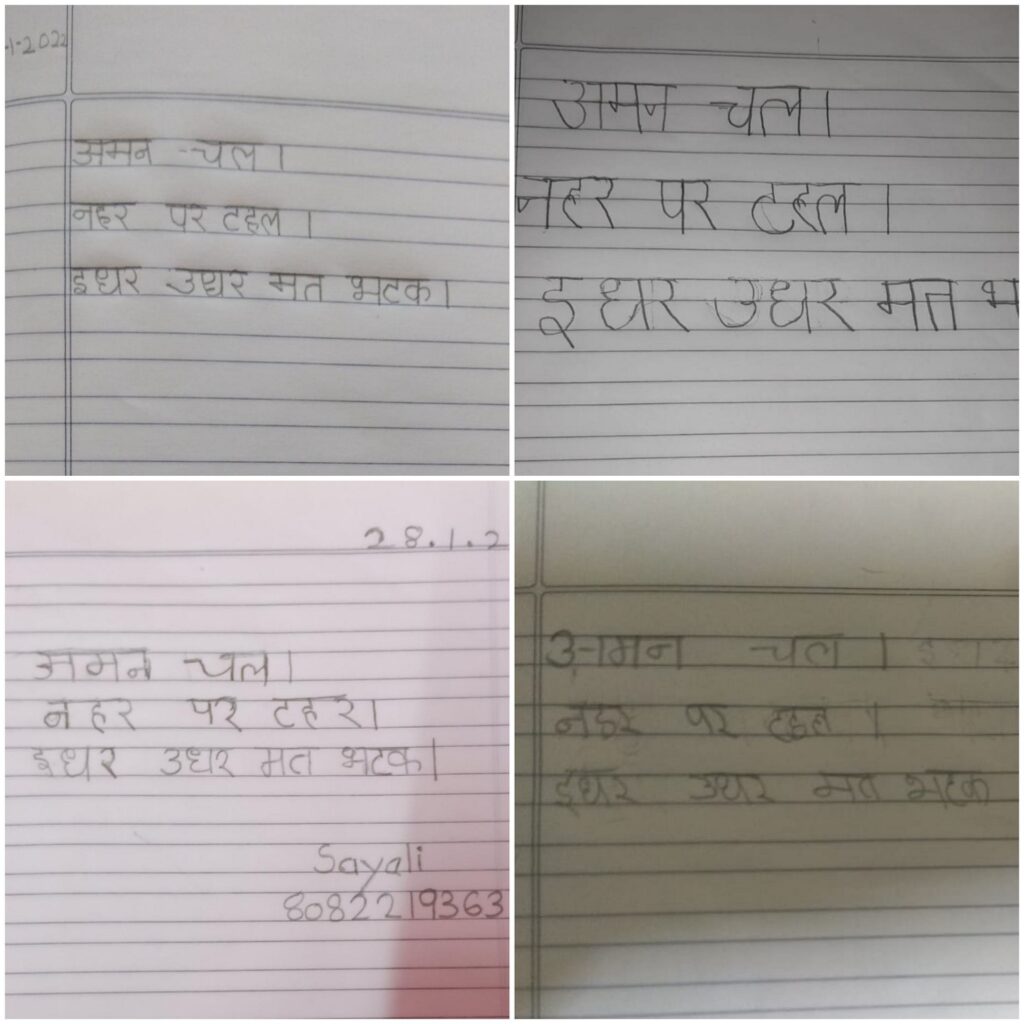 -1-2022
अमन चल।
नहर पर टहल।
इधर उधर मत भटक।
अमन चल।
नहर पर टहल।
इधर उधर मत भ
28.1.2
अमन चल।
नहर पर टहर।
इधर उधर मत भटक।
Sayali
8082219363
अमन चल।
नहर पर टहल।
इधर उधर मत भटक